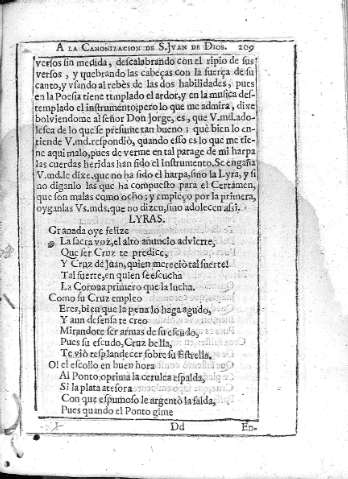 A LA CANONIZACION DE S. JVAN DE DIOS. 209
versos sin medida, descalabrando con el ripio de sus
versos, y quebrando las cabeças con la fuerça de su
canto, y vsando al rebès de las dos habilidades, pues
en la Poesia tiene templado el ardor, y en la musica des-
templado el instrumento; pero lo que me admira, dixe
bolviendome al señor Don Jorge, es, que V.md. ado-
lesca de lo que se presume tan bueno; què bien lo en-
tiende V.md. respondiò, quando esso es lo que me tie-
ne aqui malo, pues de verme en tal parage de mi harpa
las cuerdas heridas han sido el instrumento. Se engaña
V.md. le dixe, que no ha sido el harpa, sino la Lyra, y si
no diganlo las que ha compuesto para el Certamen,
que son malas como ocho; y empieço por la primera,
oyganlas Vs.mds. que no dizen, sino adolecen assi.
LYRAS.
Granada oye felize
La sacra voz, el alto anuncio advierte,
Que ser Cruz te predice,
Y Cruz de Juan, quien mereciò tal suerte!
Tal fuerte, en quien se escucha
La Corona primero que la lucha.
Como su Cruz empleo
Eres, bien que la pena lo haga agudo,
Y aun defensa te creo
Mirandote ser armas de su escudo,
Pues su escudo, Cruz bella,
Te viò resplandecer sobre su Estrella.
O! el escollo en buen hora
Al Ponto oprima la cerulea espalda,
Si la plata atesora
Con que espumoso le argentò la falda,
Pues quando el Ponto gime
Dd En-